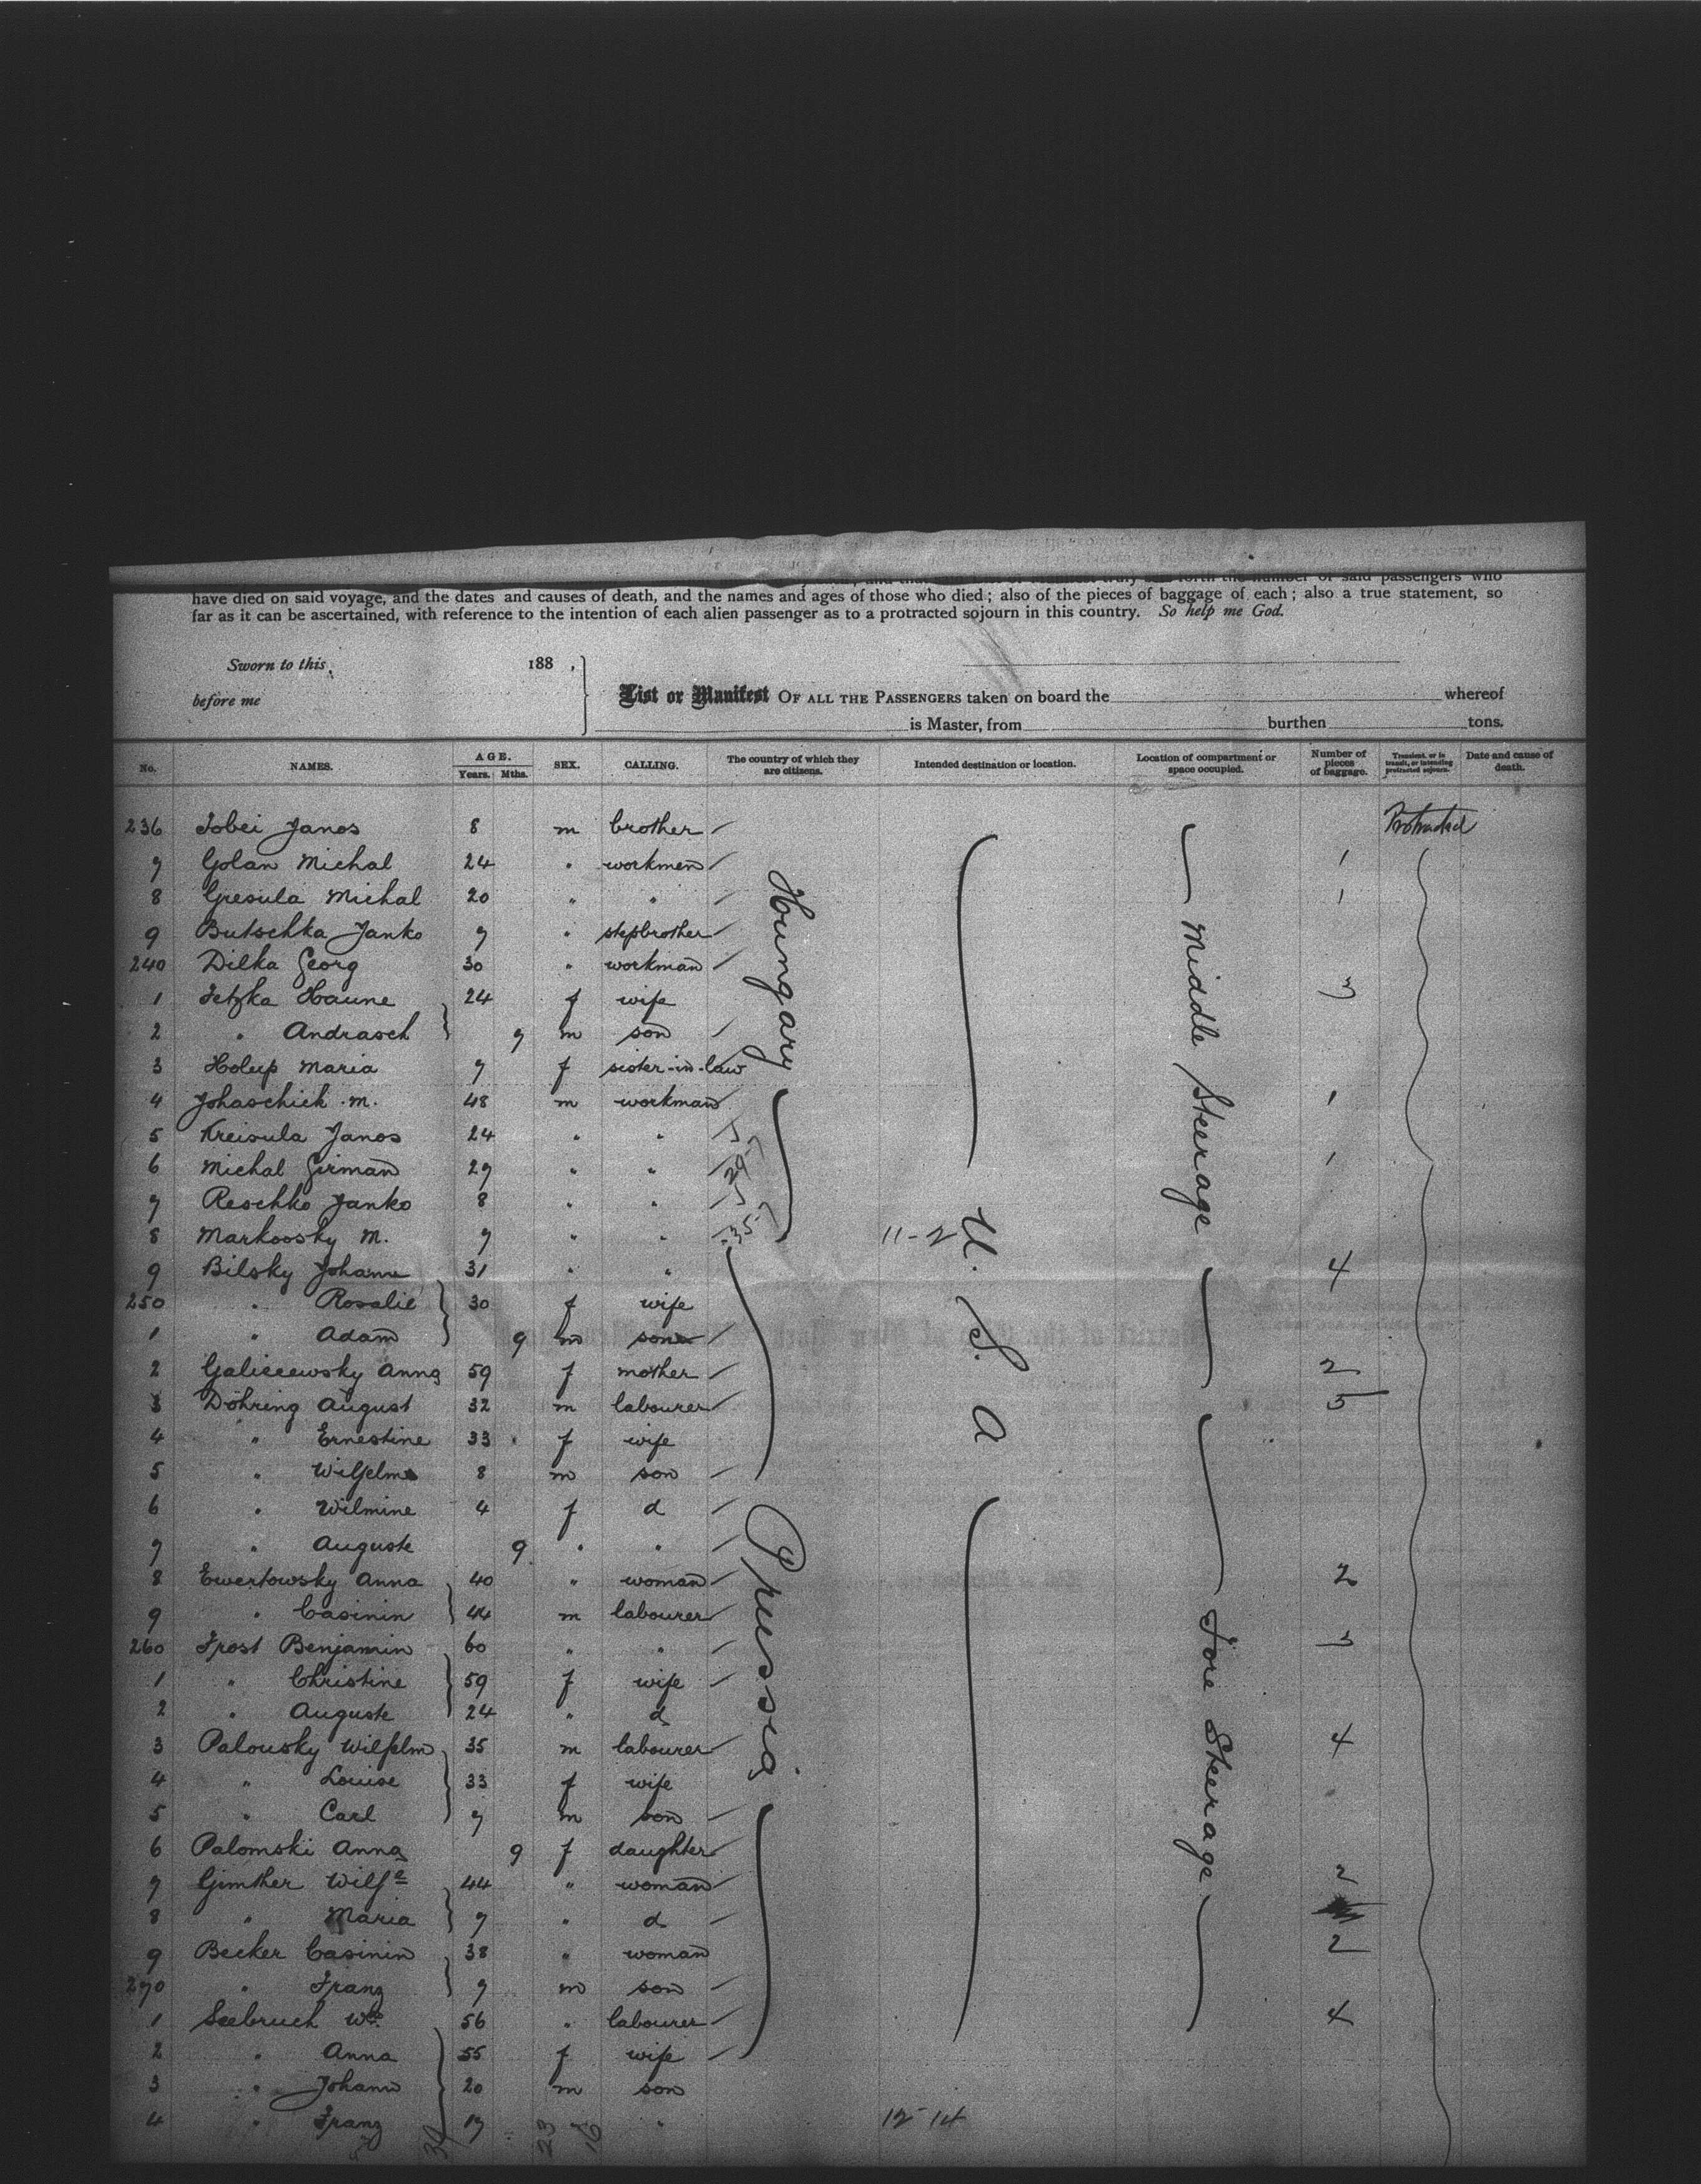 have died on said voyage, and the dates and causes of death, and the names and ages of those who died; also of the pieces of baggage of each; also a true statement, so
far as it can be ascertained, with reference to the intention of each alien passenger as to a protracted sojourn in this country. So help me God.
Sworn to this 188 ,
before me
List or Manifest OF ALL THE PASSENGERS taken on board the whereof
is Master, from burthen tons.
No. NAMES. AGE. Years. Mths. SEX. CALLING. The country of which they are citizens. Intended destination or location. Location of compartment or space occupied. Number of pieces of baggage. Transient, or in transit, or intending protracted sojourn. Date and cause of death.
236 Tobei Janos 8 m brother Protracted
7 Golan Michal 24 " workmen 1
8 Gresula Michal 20 " " 1
9 Butschka Janko 9 " stepbrother
240 Dilka Georg 30 " workman
1 Tetzka Hanne 24 f wife 3
2 " Andrasch 9 m son
3 Holup Maria 9 f sister-in-law
4 Johaschick M. 48 m workman 1
5 Kreisula Janos 24 " "
6 Michal Girman 29 " " 1
7 Reschko Janko 8 " "
8 Markoosky M. 9 " " 11-2
9 Bilsky Johann 31 " " 4
250 " Rosalie 30 f wife
1 " Adam 9 m son
2 Galiceewsky Anna 59 f mother 2
3 Döhring August 32 m labourer 5
4 " Ernestine 33 f wife
5 " Wilhelm 8 m son
6 " Wilmine 4 f d
7 " Auguste 9 " "
8 Ewertowsky Anna 40 " woman 2
9 " Casinin 44 m labourer
260 Frost Benjamin 60 " " 3
1 " Christine 59 f wife
2 " Auguste 24 " d
3 Palousky Wilhelm 35 m labourer 4
4 " Louise 33 f wife
5 " Carl 9 m son
6 Palomski Anna 9 f daughter
7 Gimther Wilhe 44 " woman 2
8 " Maria 9 " d
9 Becker Casinin 38 " woman 2
270 " Franz 9 m son
1 Seebruch Wm. 56 " labourer 4
2 " Anna 55 f wife
3 " Johann 20 m son
4 " Franz 17 " " 12-14
Hungary
Prussia
U. S. A
Middle Steerage
Fore Steerage